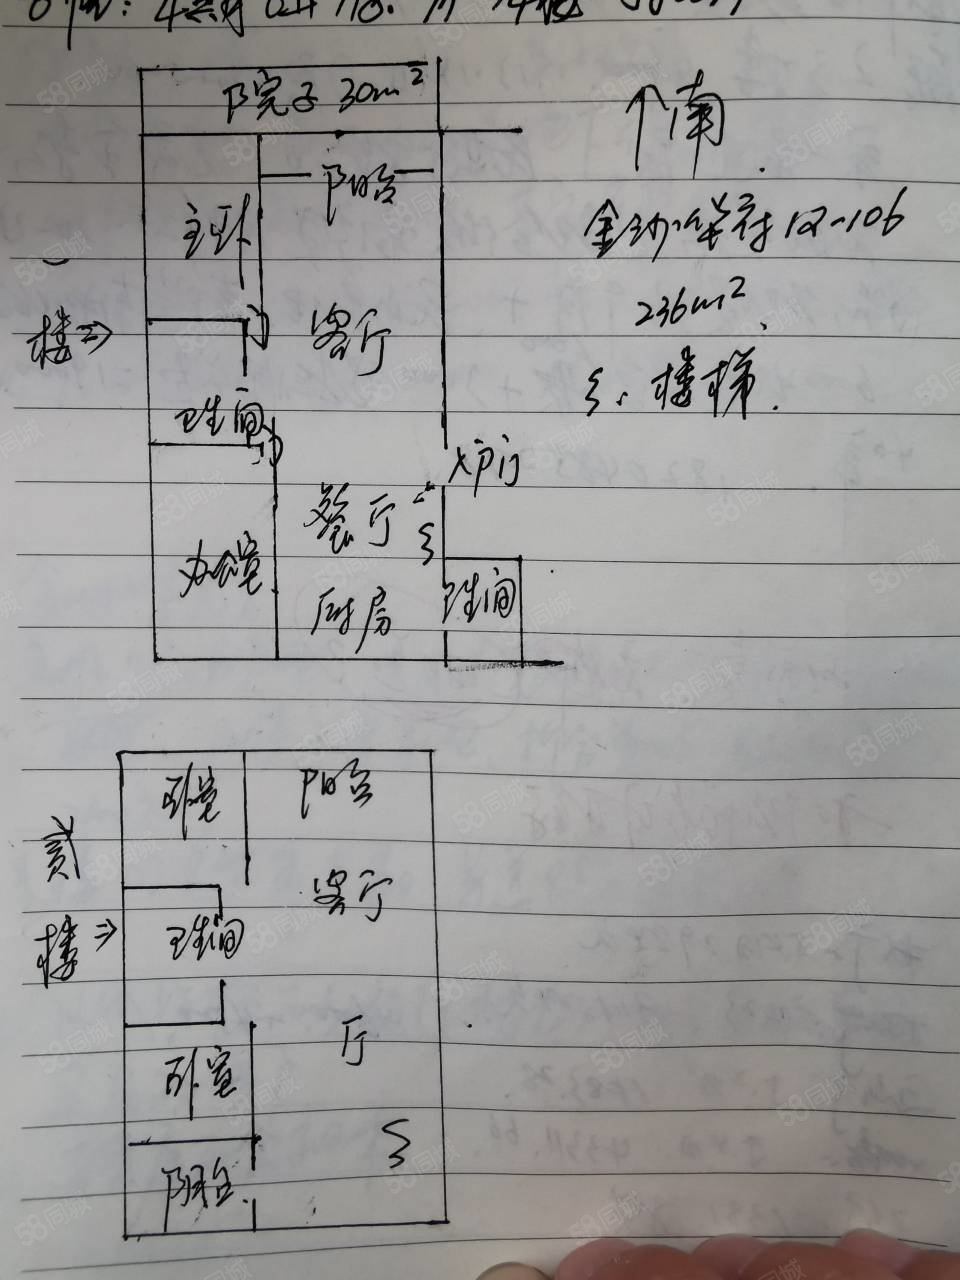 院子 30m²
↑南
阳台
主卧
金沙华府 12-106
236m²
一
楼⇒
客厅
ξ: 楼梯.
卫生间
入户门
餐厅
办公室
卫生间
厨房
卧室
阳台
贰
楼⇒
客厅
卫生间
厅
卧室
阳台
58同城